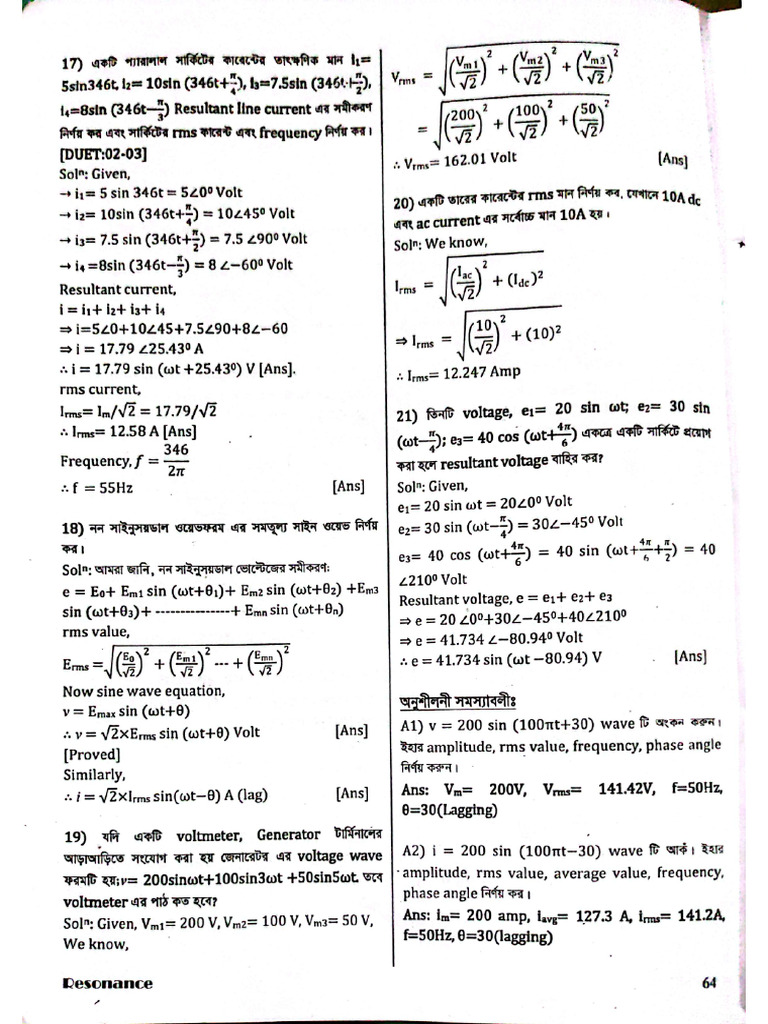 17) একটি প্যারালাল সার্কিটের কারেন্টের তাৎক্ষণিক মান i₁=
5sin346t, i₂= 10sin (346t+π/4), i₃=7.5sin (346t+π/2),
i₄=8sin (346t−π/3) Resultant line current এর সমীকরণ
নির্ণয় কর এবং সার্কিটের rms কারেন্ট এবং frequency নির্ণয় কর।
[DUET:02-03]
Solⁿ: Given,
→ i₁= 5 sin 346t = 5∠0⁰ Volt
→ i₂= 10sin (346t+π/4) = 10∠45⁰ Volt
→ i₃= 7.5 sin (346t+π/2) = 7.5 ∠90⁰ Volt
→ i₄ =8sin (346t−π/3) = 8 ∠−60⁰ Volt
Resultant current,
i = i₁+ i₂+ i₃+ i₄
⇒ i=5∠0+10∠45+7.5∠90+8∠−60
⇒ i = 17.79 ∠25.43⁰ A
∴ i = 17.79 sin (ωt +25.43⁰) V [Ans].
rms current,
Iᵣₘₛ= Iₘ/√2 = 17.79/√2
∴ Iᵣₘₛ= 12.58 A [Ans]
Frequency, f = 346/2π
∴ f = 55Hz [Ans]
18) নন সাইনুসয়ডাল ওয়েভফরম এর সমতুল্য সাইন ওয়েভ নির্ণয়
কর।
Solⁿ: আমরা জানি, নন সাইনুসয়ডাল ভোল্টেজের সমীকরণঃ
e = E₀+ Eₘ₁ sin (ωt+θ₁)+ Eₘ₂ sin (ωt+θ₂) +Eₘ₃
sin (ωt+θ₃)+ --------------- + Eₘₙ sin (ωt+θₙ)
rms value,
Eᵣₘₛ = √((E₀/√2)² + (Eₘ₁/√2)² --- + (Eₘₙ/√2)²)
Now sine wave equation,
v = Eₘₐₓ sin (ωt+θ)
∴ v = √2×Eᵣₘₛ sin (ωt+θ) Volt [Ans]
[Proved]
Similarly,
∴ i = √2×Iᵣₘₛ sin(ωt−θ) A (lag) [Ans]
19) যদি একটি voltmeter, Generator টার্মিনালের
আড়াআড়িতে সংযোগ করা হয় জেনারেটর এর voltage wave
ফরমটি হয়;v= 200sinωt+100sin3ωt +50sin5ωt. তবে
voltmeter এর পাঠ কত হবে?
Solⁿ: Given, Vₘ₁= 200 V, Vₘ₂= 100 V, Vₘ₃= 50 V,
We know,
Vᵣₘₛ = √((Vₘ₁/√2)² + (Vₘ₂/√2)² + (Vₘ₃/√2)²)
= √((200/√2)² + (100/√2)² + (50/√2)²)
∴ Vᵣₘₛ= 162.01 Volt [Ans]
20) একটি তারের কারেন্টের rms মান নির্ণয় কর, যেখানে 10A dc
এবং ac current এর সর্বোচ্চ মান 10A হয়।
Solⁿ: We know,
Iᵣₘₛ = √((Iac/√2)² + (Idc)²)
⇒ Iᵣₘₛ = √((10/√2)² + (10)²)
∴ Iᵣₘₛ= 12.247 Amp
21) তিনটি voltage, e₁= 20 sin ωt; e₂= 30 sin
(ωt−π/4); e₃= 40 cos (ωt+4π/6) একত্রে একটি সার্কিটে প্রয়োগ
করা হলে resultant voltage বাহির কর?
Solⁿ: Given,
e₁= 20 sin ωt = 20∠0⁰ Volt
e₂= 30 sin (ωt−π/4) = 30∠−45⁰ Volt
e₃= 40 cos (ωt+4π/6) = 40 sin (ωt+4π/6+π/2) = 40
∠210⁰ Volt
Resultant voltage, e = e₁+ e₂+ e₃
⇒ e = 20 ∠0⁰+30∠−45⁰+40∠210⁰
⇒ e = 41.734 ∠−80.94⁰ Volt
∴ e = 41.734 sin (ωt −80.94) V [Ans]
অনুশীলনী সমস্যাবলীঃ
A1) v = 200 sin (100πt+30) wave টি অংকন করুন।
ইহার amplitude, rms value, frequency, phase angle
নির্ণয় করুন।
Ans: Vₘ= 200V, Vᵣₘₛ= 141.42V, f=50Hz,
θ=30(Lagging)
A2) i = 200 sin (100πt−30) wave টি আর্ক। ইহার
amplitude, rms value, average value, frequency,
phase angle নির্ণয় কর।
Ans: iₘ= 200 amp, iₐᵥg= 127.3 A, iᵣₘₛ= 141.2A,
f=50Hz, θ=30(lagging)
Resonance 64